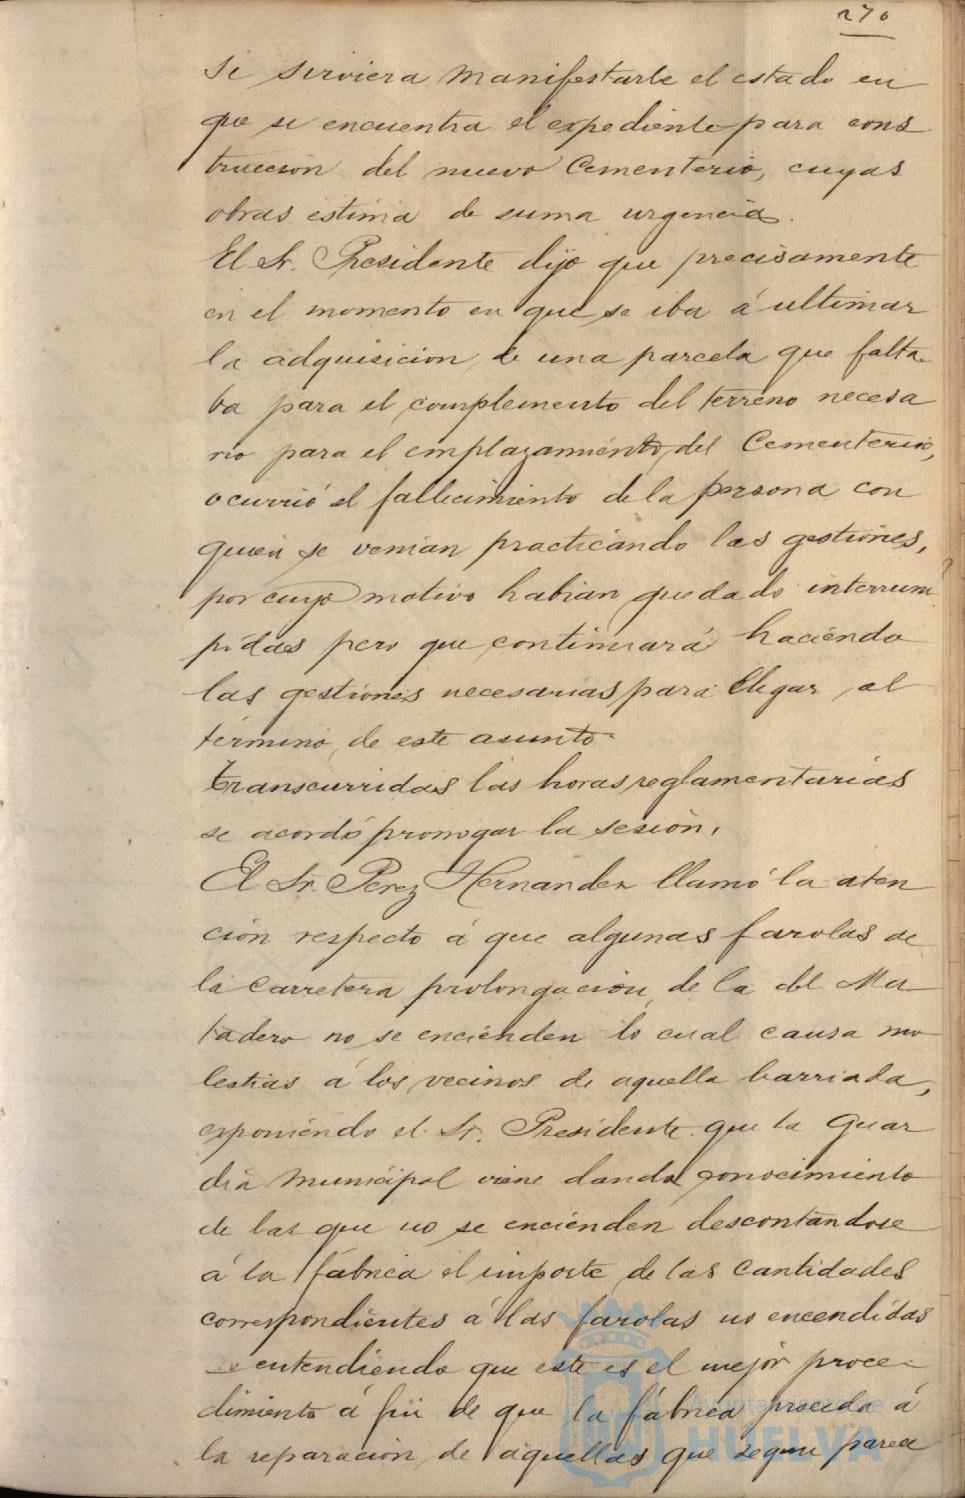 270
se sirviera manifestarle el estado en
que se encuentra el expediente para cons
trucción del nuevo Cementerio, cuyas
obras estima de suma urgencia.
El Sr. Presidente dijo que precisamente
en el momento en que se iba á ultimar
la adquisicion de una parcela que falta
ba para el complemento del terreno necesa
rio para el emplazamiento del Cementerio,
ocurrió el fallecimiento de la persona con
quien se venian practicando las gestiones,
por cuyo motivo habian quedado interrum
pidas pero que continuará haciendo
las gestiones necesarias para llegar al
término de este asunto.
Transcurridas las horas reglamentarias
se acordó prorrogar la sesión.
El Sr. Perez Hernandez llamó la aten
ción respecto á que algunas farolas de
la carretera prolongación de la del Ma
tadero no se encienden lo cual causa mo
lestias á los vecinos de aquella barriada,
exponiendo el Sr. Presidente que la Guar
dia Municipal viene dando conocimiento
de las que no se encienden descontandose
á la fábrica el importe de las cantidades
correspondientes á las farolas no encendidas
entendiendo que este es el mejor proce-
dimiento á fin de que la fábrica proceda á
la reparación de aquellas que según parece
Ayuntamiento de
HUELVA